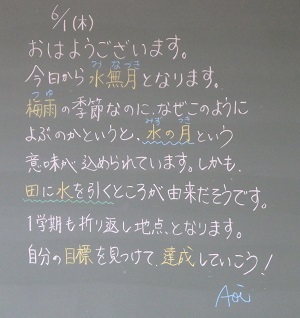 6/1(木)
おはようございます。
今日から水無月となります。
梅雨の季節なのに、なぜこのように
よぶのかというと、水の月という
意味が込められています。しかも、
田に水を引くところが由来だそうです。
1学期も折り返し地点となります。
自分の目標を見つけて、達成していこう!
Aoi